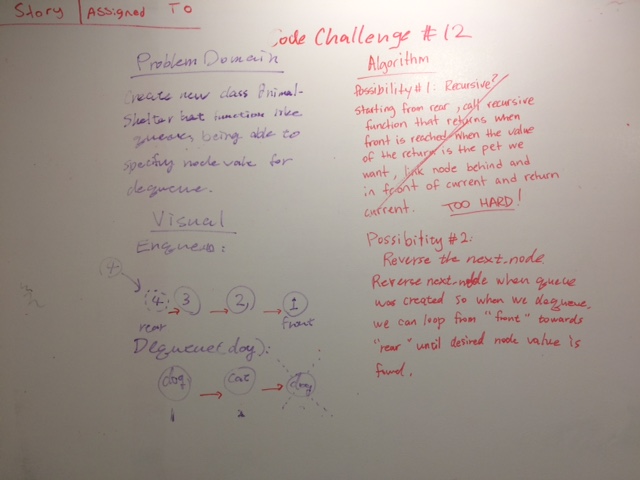 Story Assigned To
Code Challenge #12
Problem Domain
Create new class Animal-
Shelter but function like
queues, being able to
specify node value for
dequeue.
Visual
Enqueue:
4
4 3 2 1
rear front
Dequeue(dog):
dog cat dog
1 2
Algorithm
Possibility #1: Recursive?
starting from rear, call recursive
function that returns when
front is reached when the value
of the return is the pet we
want, link node behind and
in front of current and return
current. TOO HARD!
Possibility #2:
Reverse the next.node
Reverse next.node when queue
was created so when we dequeue,
we can loop from "front" towards
"rear" until desired node value is
found.